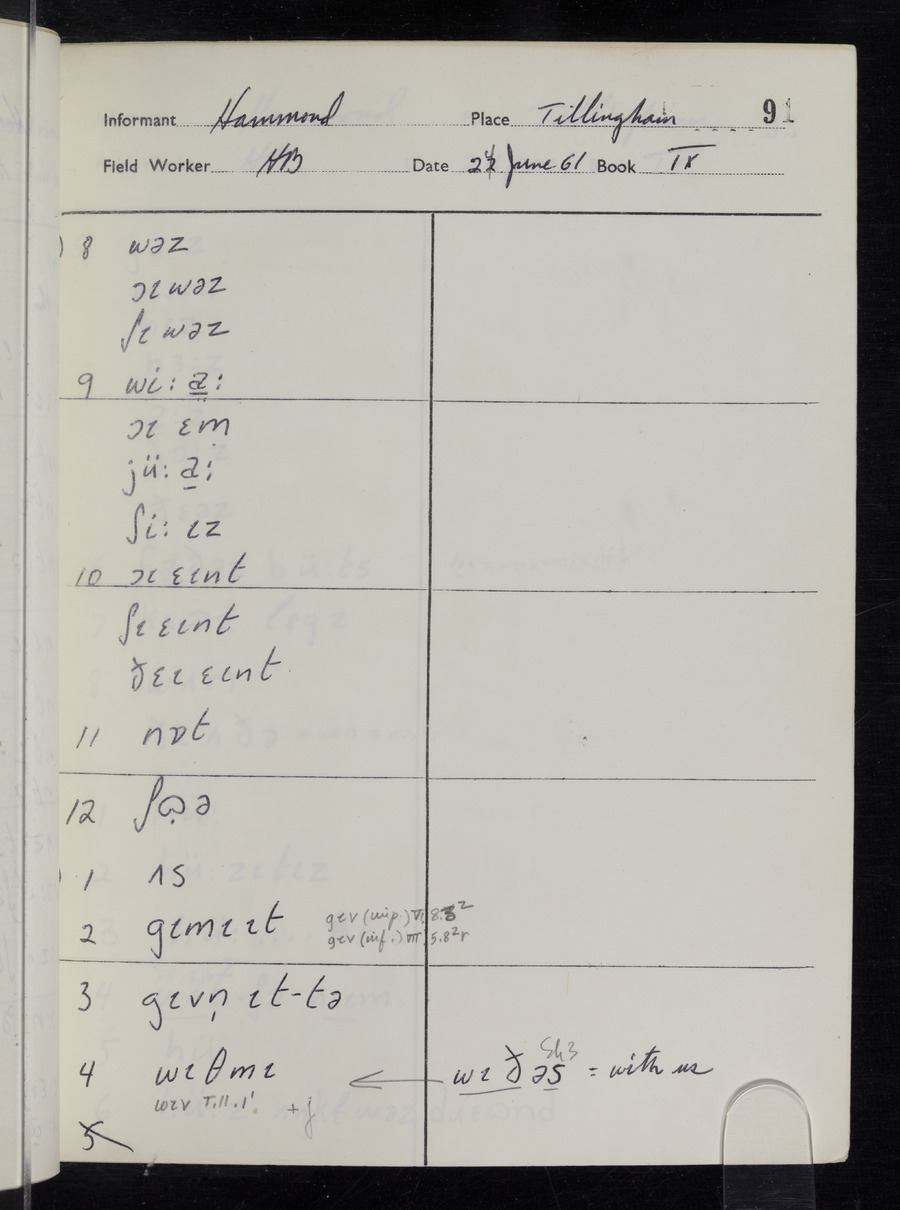 Informant Hammond Place Tillingham 91
Field Worker HB Date June 61 Book IX
8 wəz
ɔɪ wəz
ʃɪ wəz
9 wi: a̳:
ɔɪ ɛm
jü: a̱:
ʃi: ɪz
10 ɔɪ ɛɪnt
ʃɪ ɛɪnt
ðɛɪ ɛɪnt
11 nɒt
12 ʃọə
1 ʌs
2 gɪmɪɪt gɪv (imp.) VI.8.
gɪv (inf.) VII.5.8² r
3 gɪvṇ ɪt-tə
4 wɪθmɪ ← wɪðəs = with us
Sh3
wɪv I.11.1' +j
5